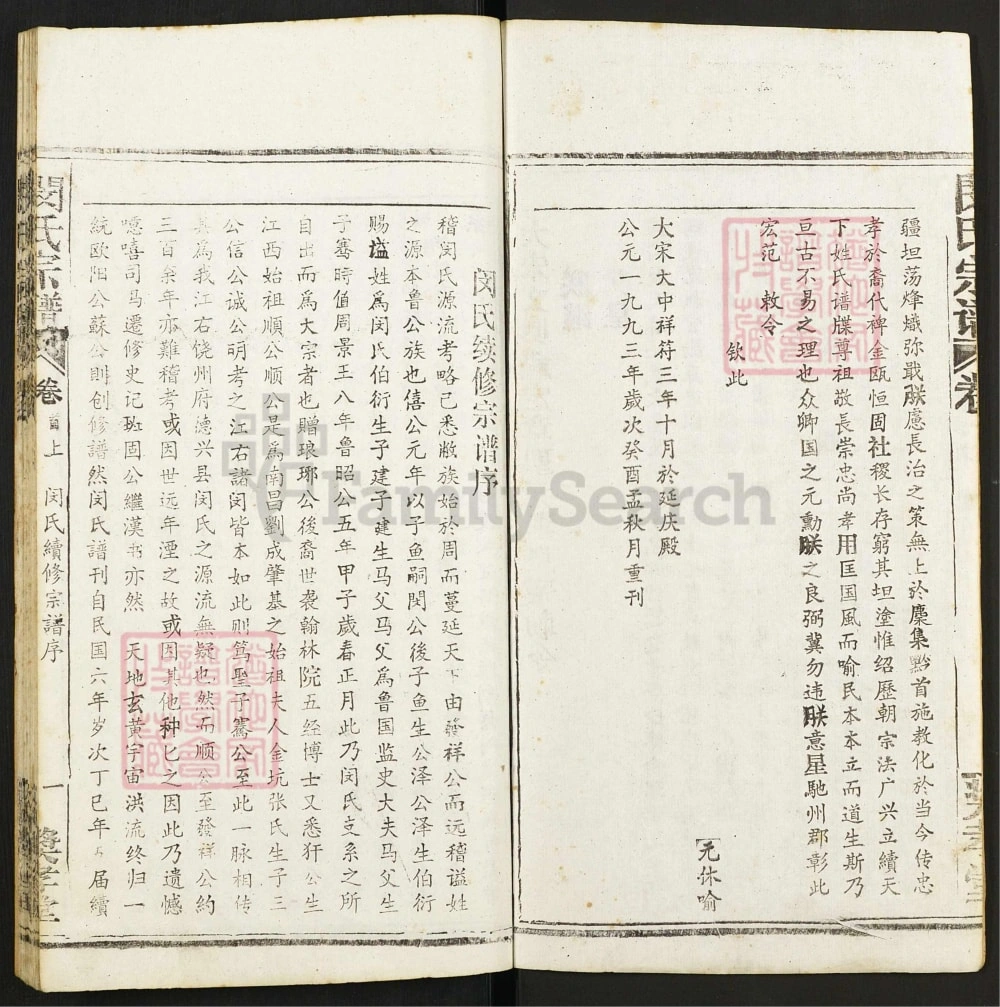 疆坦荡烽熾弥戢朕慮長治之策無上於麇集黔首施教化於当今传忠
孝於裔代裨金瓯恒固社稷长存窮其坦塗惟绍歷朝宗法广兴立續天
下姓氏谱牒尊祖敬長崇忠尚孝用匡国風而喻民本本立而道生斯乃
亘古不易之理也众卿国之元勳朕之良弼冀勿违朕意星馳州郡彰此
宏范 敕令
钦此
大宋大中祥符三年十月於延庆殿
公元一九九三年歲次癸酉孟秋月重刊
元休喻
闵氏续修宗谱序
稽闵氏源流考略已悉敝族始於周而蔓延天下由發祥公而远稽谥姓
之源本鲁公族也僖公元年以子鱼嗣闵公後子鱼生公泽公泽生伯衍
赐谥姓爲闵氏伯衍生子建子建生马父马父爲鲁国监史大夫马父生
子骞時值周景王八年鲁昭公五年甲子歲春正月此乃闵氏支系之所
自出而爲大宗者也贈琅琊公後裔世袭翰林院五经博士又悉犴公生
江西始祖順公師公順公是爲南昌劉成肇基之始祖夫人金坑张氏生子三
公信公诚公明考之江右諸闵皆本如此则篤聖子騫公至此一脉相传
其為我江右饶州府德兴县闵氏之源流無疑也然而顺公至發祥公约
三百余年亦難稽考或因世远年湮之故或因其他种匕之因此乃遗憾
噫嘻司马遷修史记班固公繼漢书亦然 天地玄黄宇宙洪流终归一
統欧阳公蘇公則创修譜然闵氏譜刊自民国六年岁次丁巳年 届續
閔氏宗譜 卷首上 闵氏續修宗譜序 一
FamilySearch